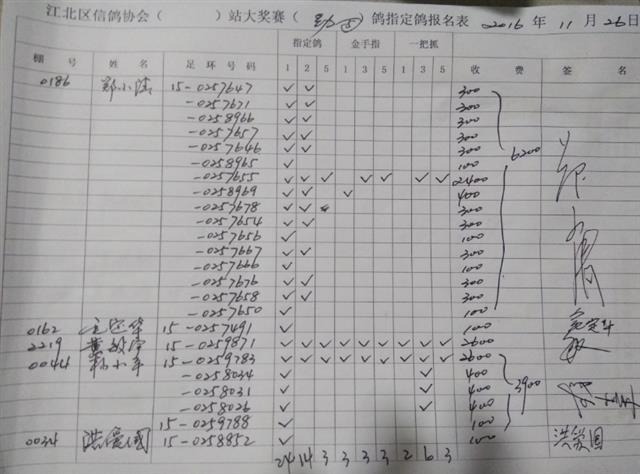 江北区信鸽协会（ ）站大奖赛（ ）鸽指定鸽报名表 2016 年 11 月 26 日
指定鸽 金手指 一把抓
棚 号 姓 名 足 环 号 码 1 2 5 1 3 5 1 3 5 收 费 签 名
0186 郑小陆 15-0257647 ✓ ✓ 300
-0257671 ✓ ✓ 300
-0258966 ✓ ✓ 300
-0257657 ✓ ✓ 300
-0257646 ✓ ✓ 300
-0258965 ✓ 100 6200
-0257655 ✓ ✓ ✓ ✓ ✓ ✓ ✓ 2400
-0258969 ✓ ✓ ✓ 400
-0257678 ✓ ✓ 300
-0257654 ✓ ✓ 300
-0257656 ✓ 100
-0257667 ✓ ✓ 300
-0257666 ✓ 100
-0257676 ✓ ✓ 300
-0257658 ✓ ✓ 300
-0257650 ✓ 100
0162 15-0257491 ✓ 100
2219 15-0259871 ✓ ✓ ✓ ✓ ✓ ✓ ✓ ✓ ✓ 2600
0044 15-0259783 ✓ ✓ ✓ ✓ ✓ ✓ ✓ ✓ ✓ 2600
-0258034 ✓ ✓ 400
-0258031 ✓ ✓ 400 3900
-0258026 ✓ ✓ 400
15-0259788 ✓ 100
0034 洪爱国 15-0258852 ✓ 100 洪爱国
24 14 3 3 3 3 2 6 3